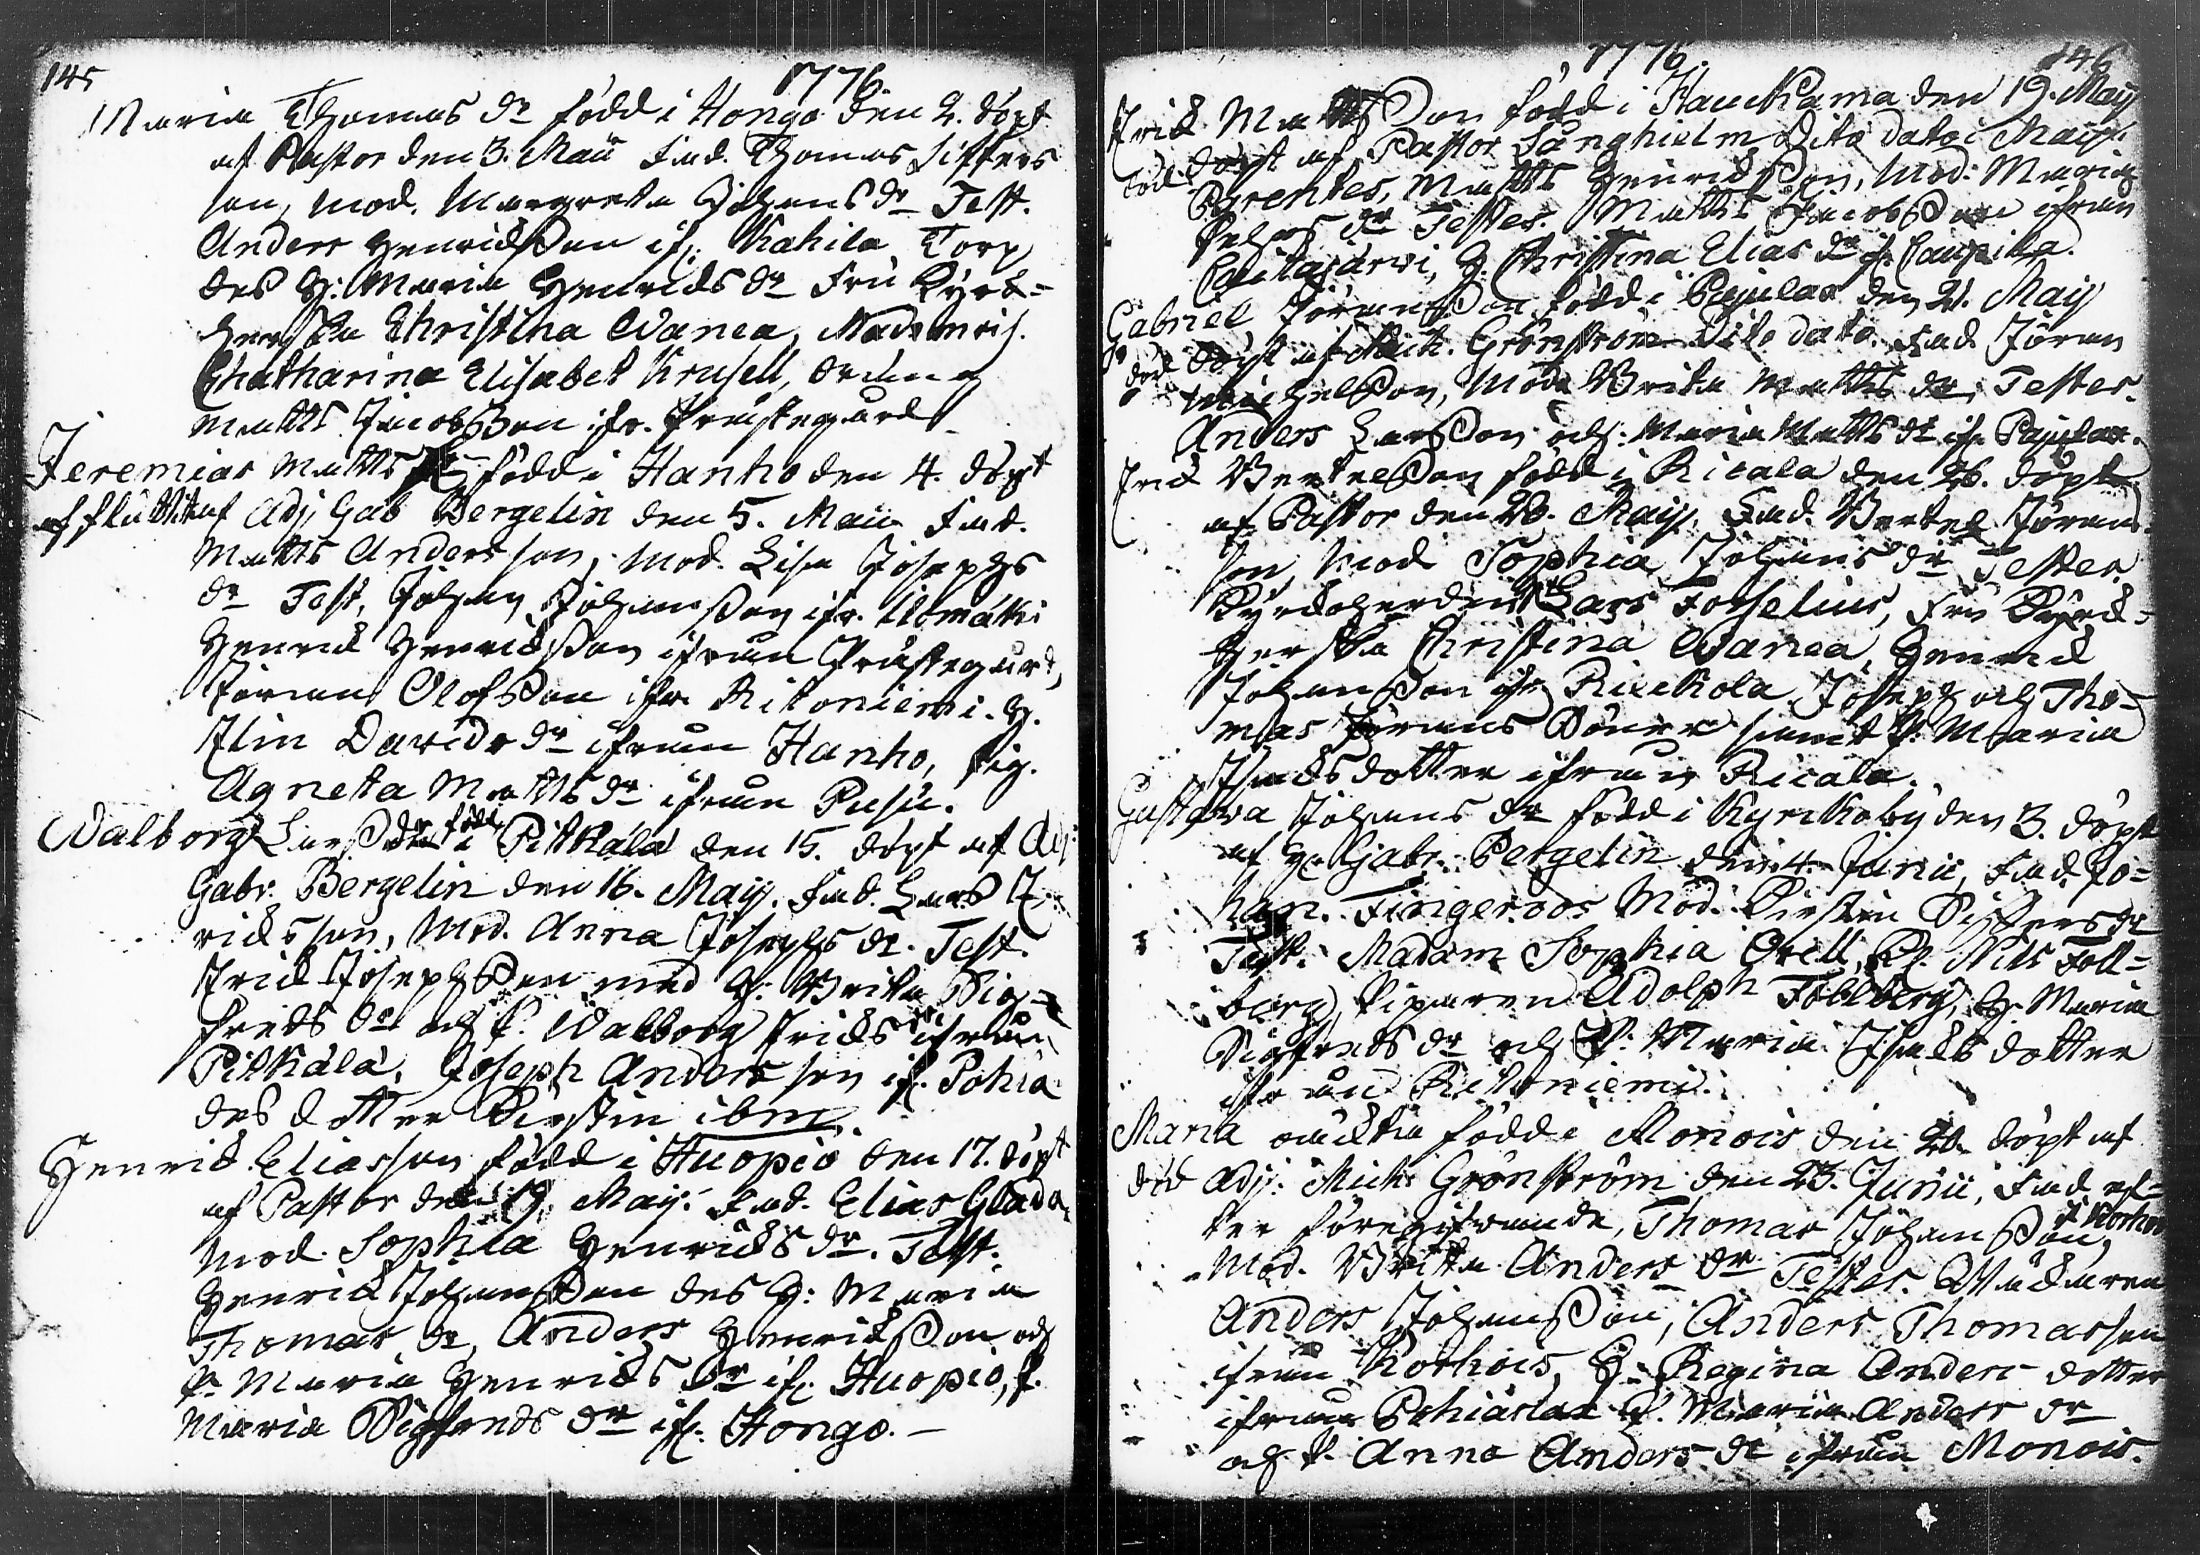 145
1776
Maria Thomas dr född i Hongo den 2. döpt
af Pastor den 3. Maii Fad. Thomas Siffers
son, Mod. Margreta Johans dr Test.
Anders Henricsson ifr. Kahila Torp
des H: Maria Henrics dr Fru Kyrk-
herskan Christina Wanea, Madmois.
Chatharina Elisabet Krusell, Dräng
Matts Jacobsson ifr. Prästegård
Jeremias Matts född i Hanho den 4. döpt
af flutit af Adj. Gab Bergelin den 5. Maii Fad.
Matts Andersson, Mod. Lisa Josephs
dr Test. Johan Johansson ifr.
Henric Henricsson ifrån Prästegård,
Jöran Olofsson ifr. Ritoniemi. H.
Elin Davids dr ifrån Hanho, pig.
Agneta Matts dr ifrån Pusu.
Walborg Lars dr född i Pitkälä den 15. döpt af Adj.
Gabr. Bergelin den 16. Maij. Fad. Lars E
ricsson, Mod. Anna Josephs dr. Test.
Eric Josephsson med H: Brita Sig-
freds dr och P. Walborg Erics ifrån
Pitkälä, Joseph Andersson if. Pohia
des dotter Kirstin ibm.
Henric Eliasson född i Huopio den 17. döpt
af Pastor den 19. Maij. Fad. Elias Glada,
Mod. Sophia Henrics dr. Test.
Henric Johansson des H: Maria
Thomas dr, Anders Henricsson och
P. Maria Henrics dr if. Huopio, P.
Maria Sigfreds dr if. Hongo. –
1776.
146
Eric Mattsson född i Haukkama den 19. Maij
död döpt af Pastor Långhielm Dito dato i Maij.
Parentes, Matts Henricsson, Mod: Maria
dr Testes. Matts Jacobsson ifrån
H. Christina Elias dr if. Laupila.
Gabriel Jöransson född i Pajulax den 21. Maij
död döpt af Mich. Grönström Dito dato. Fad Jöran
Michelsson, Mod: Brita Matts dr. Testes.
Anders Larsson och: Maria Matts dr ifr Pajulax.
Eric Bertelsson född i Ricala den 26. döpt
af Pastor den 28. Maij. Fad. Bertel Jörans-
son Mod Sophia Johans dr Testes
Kyrkoherden Lars Forselius, Fru Kyrk-
herskan Christina Wanea, Henric
Johansson ifr Rickola, Joseph och Tho-
mas Jörans Söner samt P: Maria
Isacsdotter ifrån Ricala.
Gustava Johans dr född i Kyrkoby den 3. döpt
af H. Gabr: Bergelin den 4. Junii, Fad. Jo-
han. Fingerroos Mod. Kirstin Siffers dr
Test. Madam Sophia Orell, Nils Foll-
berg, Piparen Adolph Follberg, H: Maria
Sigfreds dr och P: Maria Isacs dotter
ifrån Ritoniemi.
Maria oäckta född i Monois den 20. döpt af
död Adj. Mich. Grönström den 23. Junii, Fad ef-
ter föregifvande, Thomas Johansson, i Korhois
Mod. Britta Anders dr Testes.
Anders Johansson, Anders Thomasson
ifrån Korhois, H. Regina Anders dotter
ifrån P. Maria Anders dr
och P. Anna Anders dr ifrån Monois.